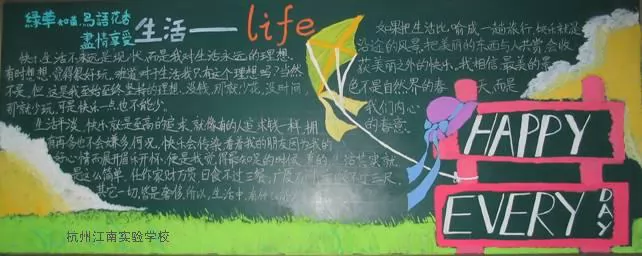 綠草如茵 鳥語花香
盡情享受 生活——life
快乐生活不永远是现状,而是我对生活永远的理想.
有时想想,觉得很好玩,难道对于生活我只有这个理想吗?当然
不是,但这是我至始至终坚持的理想.没钱,那就少花,没时间,
那就少玩,可是快乐一点也不能少.
生活平淡,快乐就是至高的追求,就像有的人追求钱一样,拥
有再多也不会嫌多何况,快乐会传染看着我的朋友因为我的
好心情而展眉乐开怀,便是我觉得最知足的时候,真的
是这么简单,任你家财万贯日食不过三餐,广厦万
其它一切,皆是奢侈,所以,生活中
如果把生活比喻成一趟旅行,快乐就是
沿途的风景,把美丽的东西与人共赏,会收
获美丽之外的快乐.我相信,最美的景
色不是自然界的春天,而是
我们内心
的春意.
活其实就
过三尺,
HAPPY
EVERY DAY
杭州江南实验学校